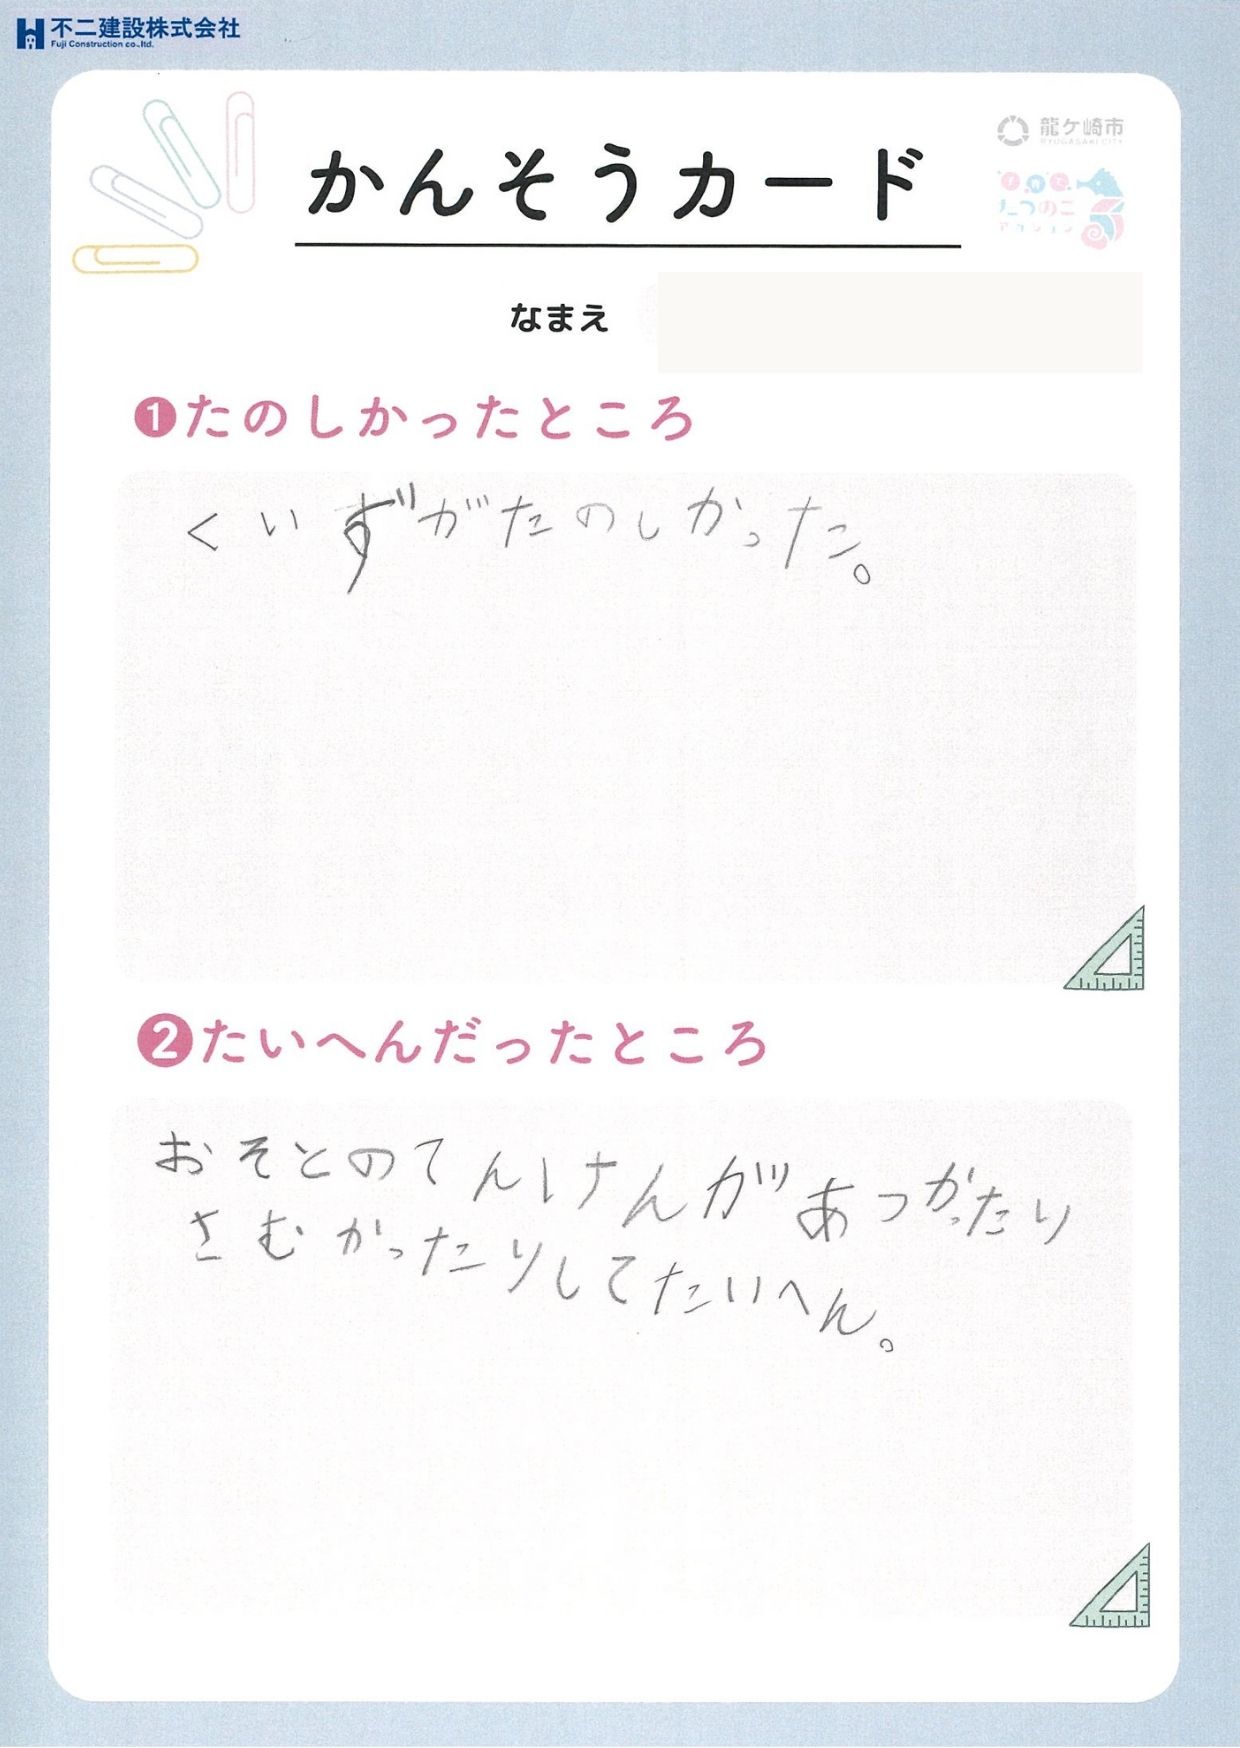 不二建設株式会社
Fuji Construction co.,ltd.
龍ケ崎市
RYUGASAKI CITY
かんそうカード
たつのこ
アクション
なまえ
❶たのしかったところ
くいずがたのしかった。
❷たいへんだったところ
おそとのてんけんがあつかったり
さむかったりしてたいへん。